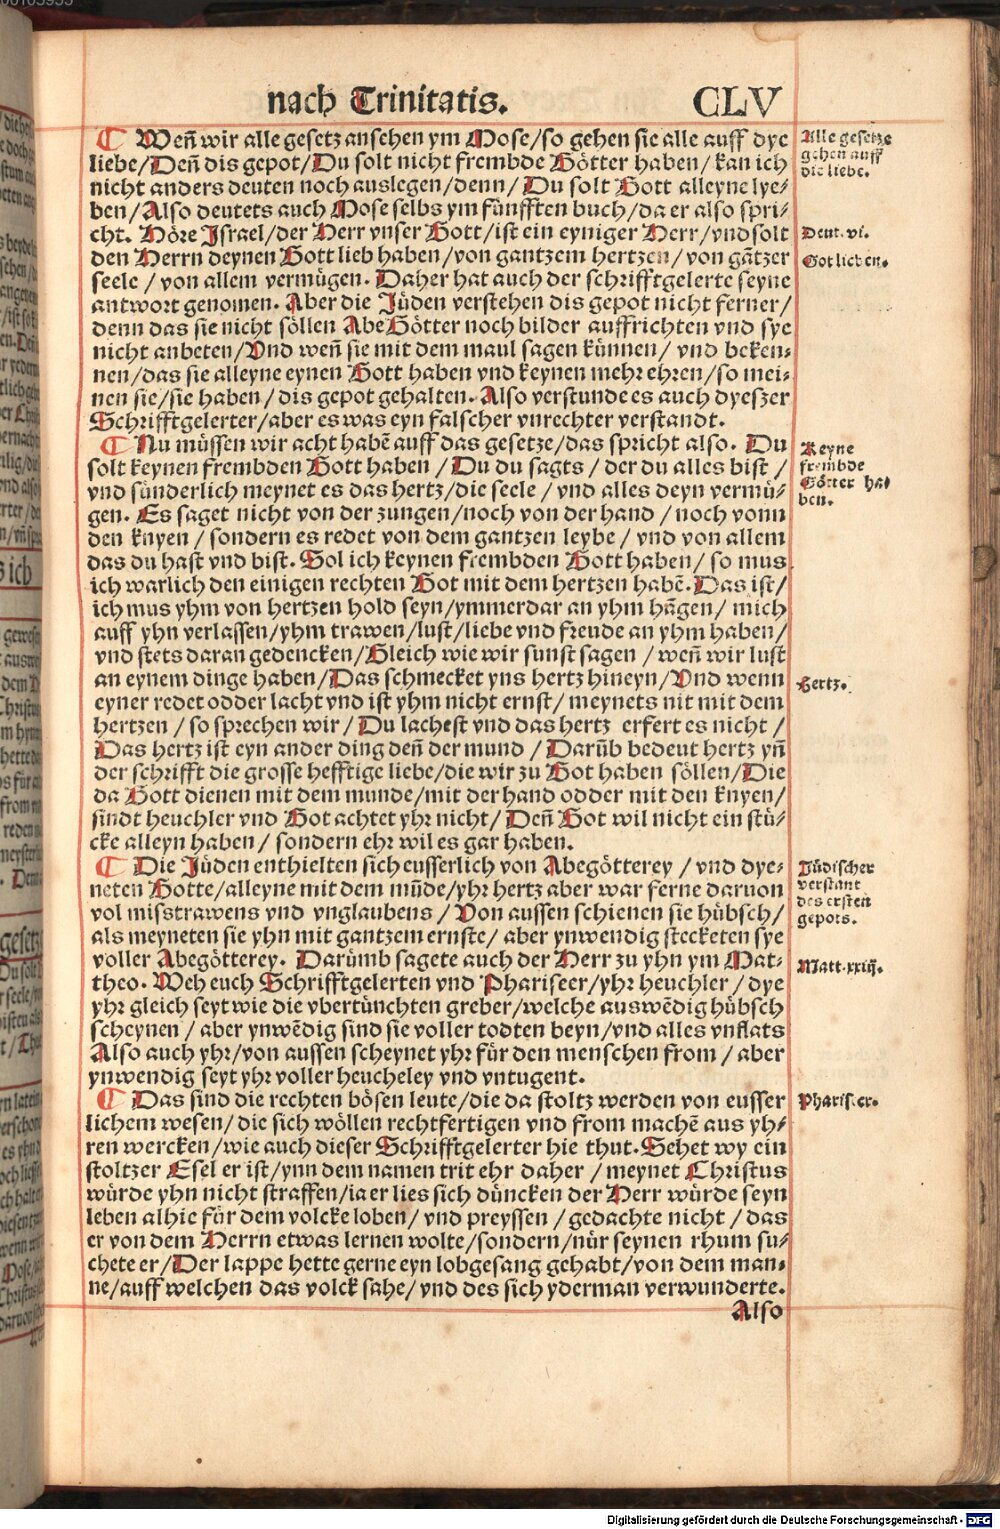 nach Trinitatis. CLV
¶ Weñ wir alle gesetz ansehen ym Mose/so gehen sie alle auff dye
liebe/Deñ dis gepot/Du solt nicht frembde Götter haben/kan ich
nicht anders deuten noch auslegen/denn/Du solt Gott alleyne lye-
ben/Also deutets auch Mose selbs ym fünfften buch/da er also spri-
cht. Höre Israel/der Herr vnser Gott/ist ein eyniger Herr/vnd solt
den Herrn deynen Gott lieb haben/von gantzem hertzen/von gātzer
seele/von allem vermügen. Daher hat auch der schrifftgelerte seyne
antwort genomen. Aber die Jüden verstehen dis gepot nicht ferner/
denn das sie nicht söllen AbeGötter noch bilder auffrichten vnd sye
nicht anbeten/Vnd weñ sie mit dem maul sagen künnen/vnd beken-
nen/das sie alleyne eynen Gott haben vnd keynen mehr ehren/so mei-
nen sie/sie haben/dis gepot gehalten. Also verstunde es auch dyeszer
Schrifftgelerter/aber es was eyn falscher vnrechter verstandt.
¶ Nu müssen wir acht habē auff das gesetze/das spricht also. Du
solt keynen frembden Gott haben/Du du sagts/der du alles bist/
vnd sünderlich meynet es das hertz/die seele/vnd alles deyn vermü-
gen. Es saget nicht von der zungen/noch von der hand/noch vonn
den knyen/sondern es redet von dem gantzen leybe/vnd von allem
das du hast vnd bist. Sol ich keynen frembden Gott haben/so mus
ich warlich den einigen rechten Got mit dem hertzen habē. Das ist/
ich mus yhm von hertzen hold seyn/ymmerdar an yhm hāgen/mich
auff yhn verlassen/yhm trawen/lust/liebe vnd freude an yhm haben/
vnd stets daran gedencken/Gleich wie wir sunst sagen/weñ wir lust
an eynem dinge haben/Das schmecket yns hertz hineyn/Vnd wenn
eyner redet odder lacht vnd ist yhm nicht ernst/meynets nit mit dem
hertzen/so sprechen wir/Du lachest vnd das hertz erfert es nicht/
Das hertz ist eyn ander ding deñ der mund/Darūb bedeut hertz yñ
der schrifft die grosse hefftige liebe/die wir zu Got haben söllen/Die
da Gott dienen mit dem munde/mit der hand odder mit den knyen/
sindt heuchler vnd Got achtet yhr nicht/Deñ Got wil nicht ein stü-
cke alleyn haben/sondern ehr wil es gar haben.
¶ Die Jüden enthielten sich eusserlich von Abegötterey/vnd dye-
neten Gotte/alleyne mit dem mūde/yhr hertz aber war ferne daruon
vol misstrawens vnd vnglaubens/Von aussen schienen sie hübsch/
als meyneten sie yhn mit gantzem ernste/aber ynwendig stecketen sye
voller Abegötterey. Darümb sagete auch der Herr zu yhn ym Mat-
theo. Weh euch Schrifftgelerten vnd Phariseer/yhr heuchler/dye
yhr gleich seyt wie die vbertünchten greber/welche auswēdig hübsch
scheynen/aber ynwēdig sind sie voller todten beyn/vnd alles vnflats
Also auch yhr/von aussen scheynet yhr für den menschen from/aber
ynwendig seyt yhr voller heucheley vnd vntugent.
¶ Das sind die rechten bösen leute/die da stoltz werden von eusser
lichem wesen/die sich wöllen rechtfertigen vnd from machē aus yh-
ren wercken/wie auch dieser Schrifftgelerter hie thut. Sehet wy ein
stoltzer Esel er ist/ynn dem namen trit ehr daher/meynet Christus
würde yhn nicht straffen/ia er lies sich düncken der Herr würde seyn
leben alhie für dem volcke loben/vnd preyssen/gedachte nicht/das
er von dem Herrn etwas lernen wolte/sondern/nür seynen rhum su-
chete er/Der lappe hette gerne eyn lobgesang gehabt/von dem man-
ne/auff welchen das volck sahe/vnd des sich yderman verwunderte.
Also
Alle gesetze
gehen auff
die liebe.
Deut. vi.
Got lieben.
Keyne
frembde
Götter ha-
ben.
Hertz.
Jüdischer
verstant
des ersten
gepots.
Matt. xxiij.
Phariseer.
Digitalisierung gefördert durch die Deutsche Forschungsgemeinschaft - DFG